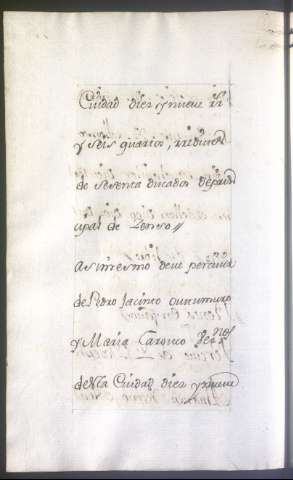 Ciudad diez y nueve rr
y seis quartos, rredicion
de sesenta ducados deprin
cipal de Zenso //
asimesmo deve percevir
de Pedro Jacinto
y Maria Vez.nos
desta Ciudad diez y nueve